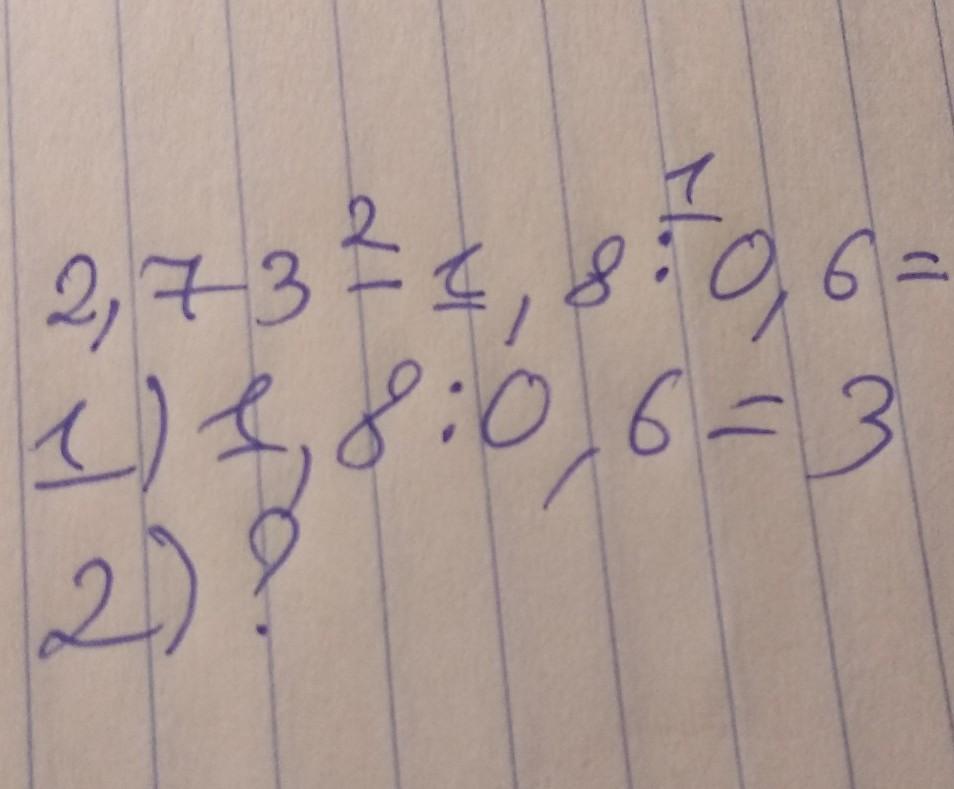 2 1
2,73 - 1,8 : 0,6 =
1) 1,8 : 0,6 = 3
2) ?